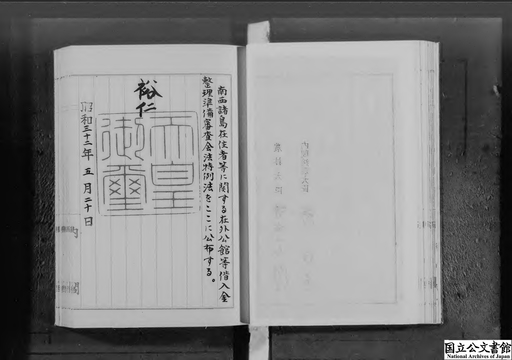 南西諸島在住者等に関する在外公館等借入金
整理準備審査会法特例法をここに公布する。
裕仁
天皇
御璽
昭和三十二年五月二十日
国立公文書館
National Archives of Japan